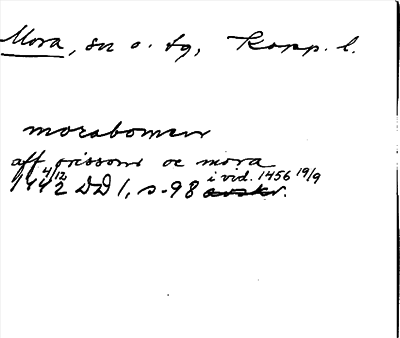 Mora, sn o. tg, Kopp. l.
morabomen
aff orissom oc mora
1442 4/12 DD 1, s. 98 avskr. i vid. 1456 19/9